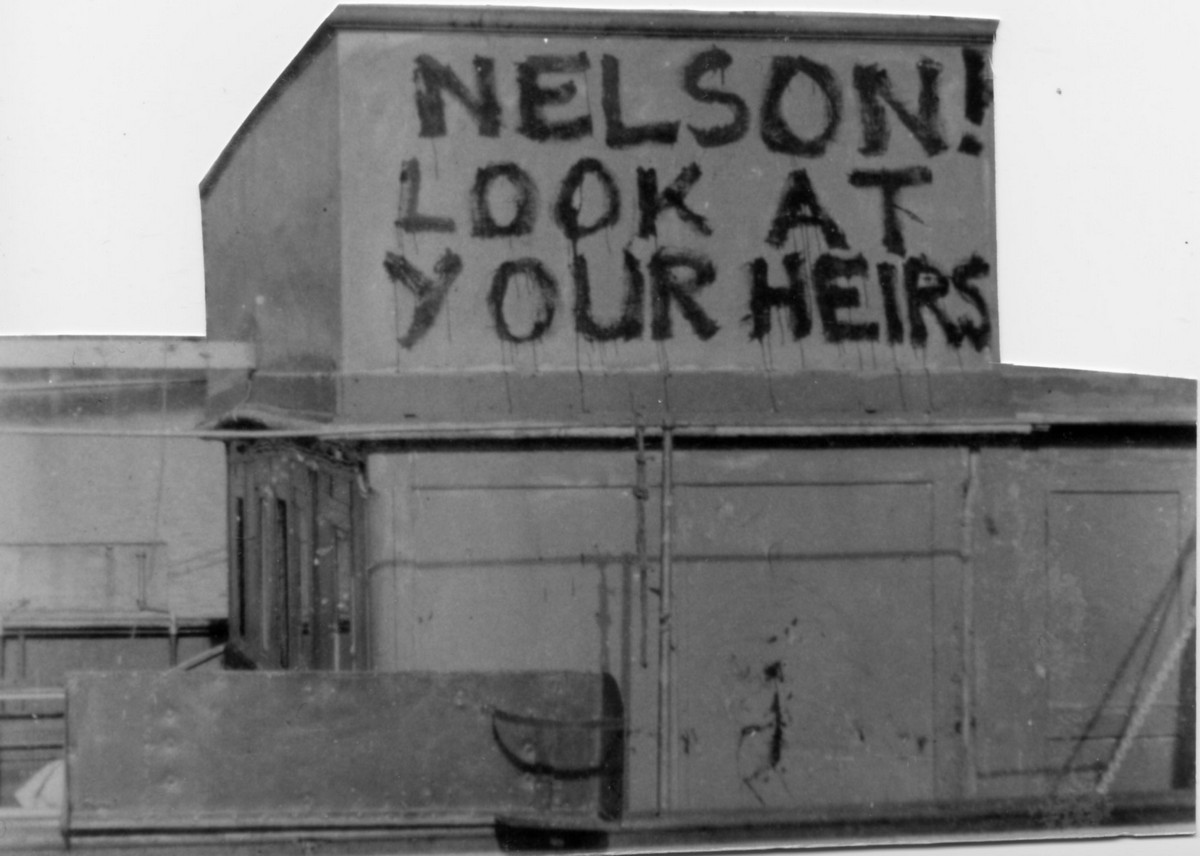 NELSON!
LOOK AT
YOUR HEIRS